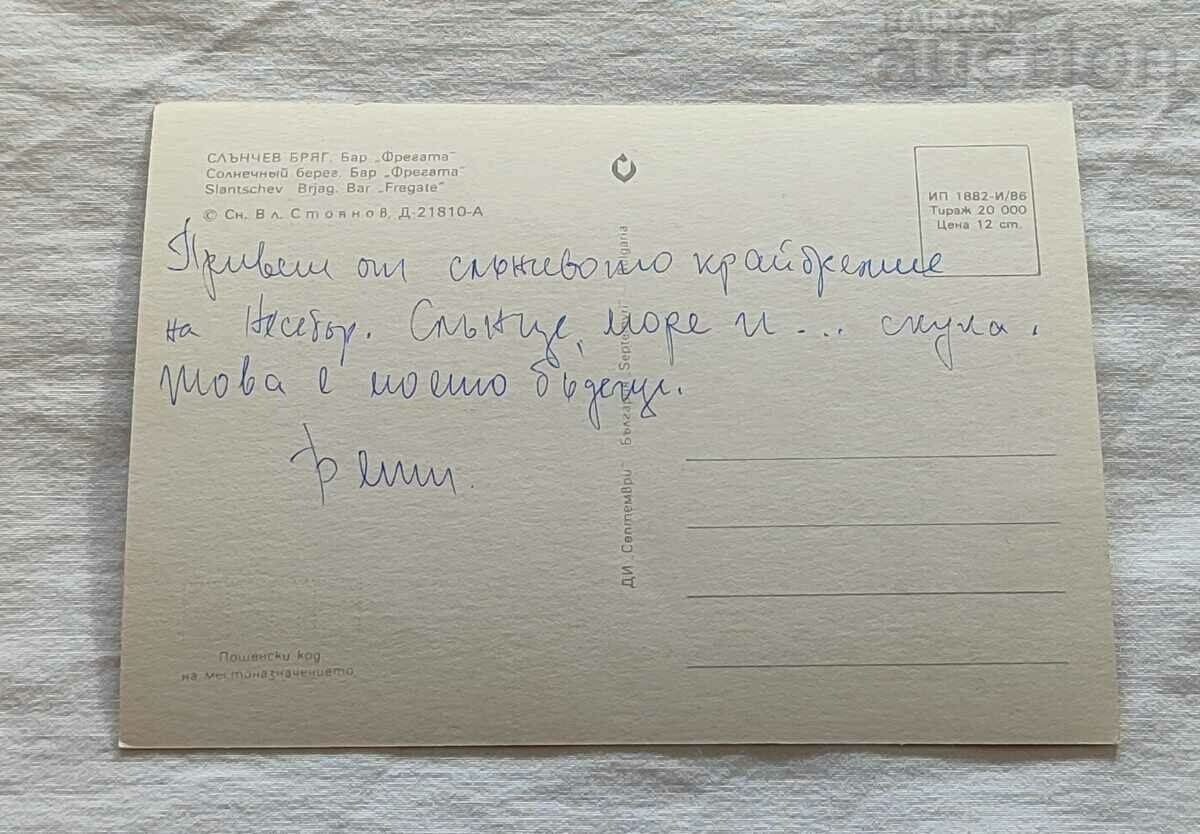 BALKAN
auction
СЛЪНЧЕВ БРЯГ. Бар „Фрегата"
Солнечный берег. Бар „Фрегата"
Slantschev Brjag. Bar „Fregate"
© Сн. Вл. Стоянов, Д-21810-А
ИП 1882-И/86
Тираж 20 000
Цена 12 ст.
Привет от слънчевото крайбрежие
на Несебър. Слънце, море и ... скука.
Това е моето бъдеще.
ДИ „Септември" България Septemvri Bulgaria
Пощенски код
на местоназначението